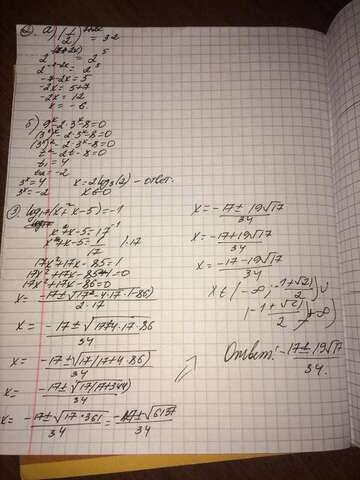 ② а) (1/2)^7+2x = 32
2^-(7+2x) = 2^5
2^-7-2x = 2^5
-7-2x = 5
-2x = 5+7
-2x = 12
x = -6
б) 9^x - 2·3^x - 8 = 0
(3²)^x - 2·3^x - 8 = 0
(3^x)² - 2·3^x - 8 = 0
t² - 2t - 8 = 0
t₁ = 4
t₂ = -2
3^x = 4 x = 2log₃(2) - ответ.
3^x = -2 x∈∅
③ log₁₇(x²+x-5) = -1
x²+x-5 = 17^-1
x²+x-5 = 1/17 |·17
17x²+17x-85 = 1
17x²+17x-85-1 = 0
17x²+17x-86 = 0
x = (-17±√(17²-4·17·(-86)))/(2·17)
x = (-17±√(17²+4·17·86))/34
x = (-17±√(17(17+4·86)))/34
x = (-17±√(17(17+344)))/34
x = (-17±√(17·361))/34 = (-17±√6137)/34
x = (-17±19√17)/34
x = (-17+19√17)/34
x = (-17-19√17)/34
x∈(-∞; (-1+√21)/2) ∪
((-1+√21)/2; +∞)
Ответ: (-17±19√17)/34.